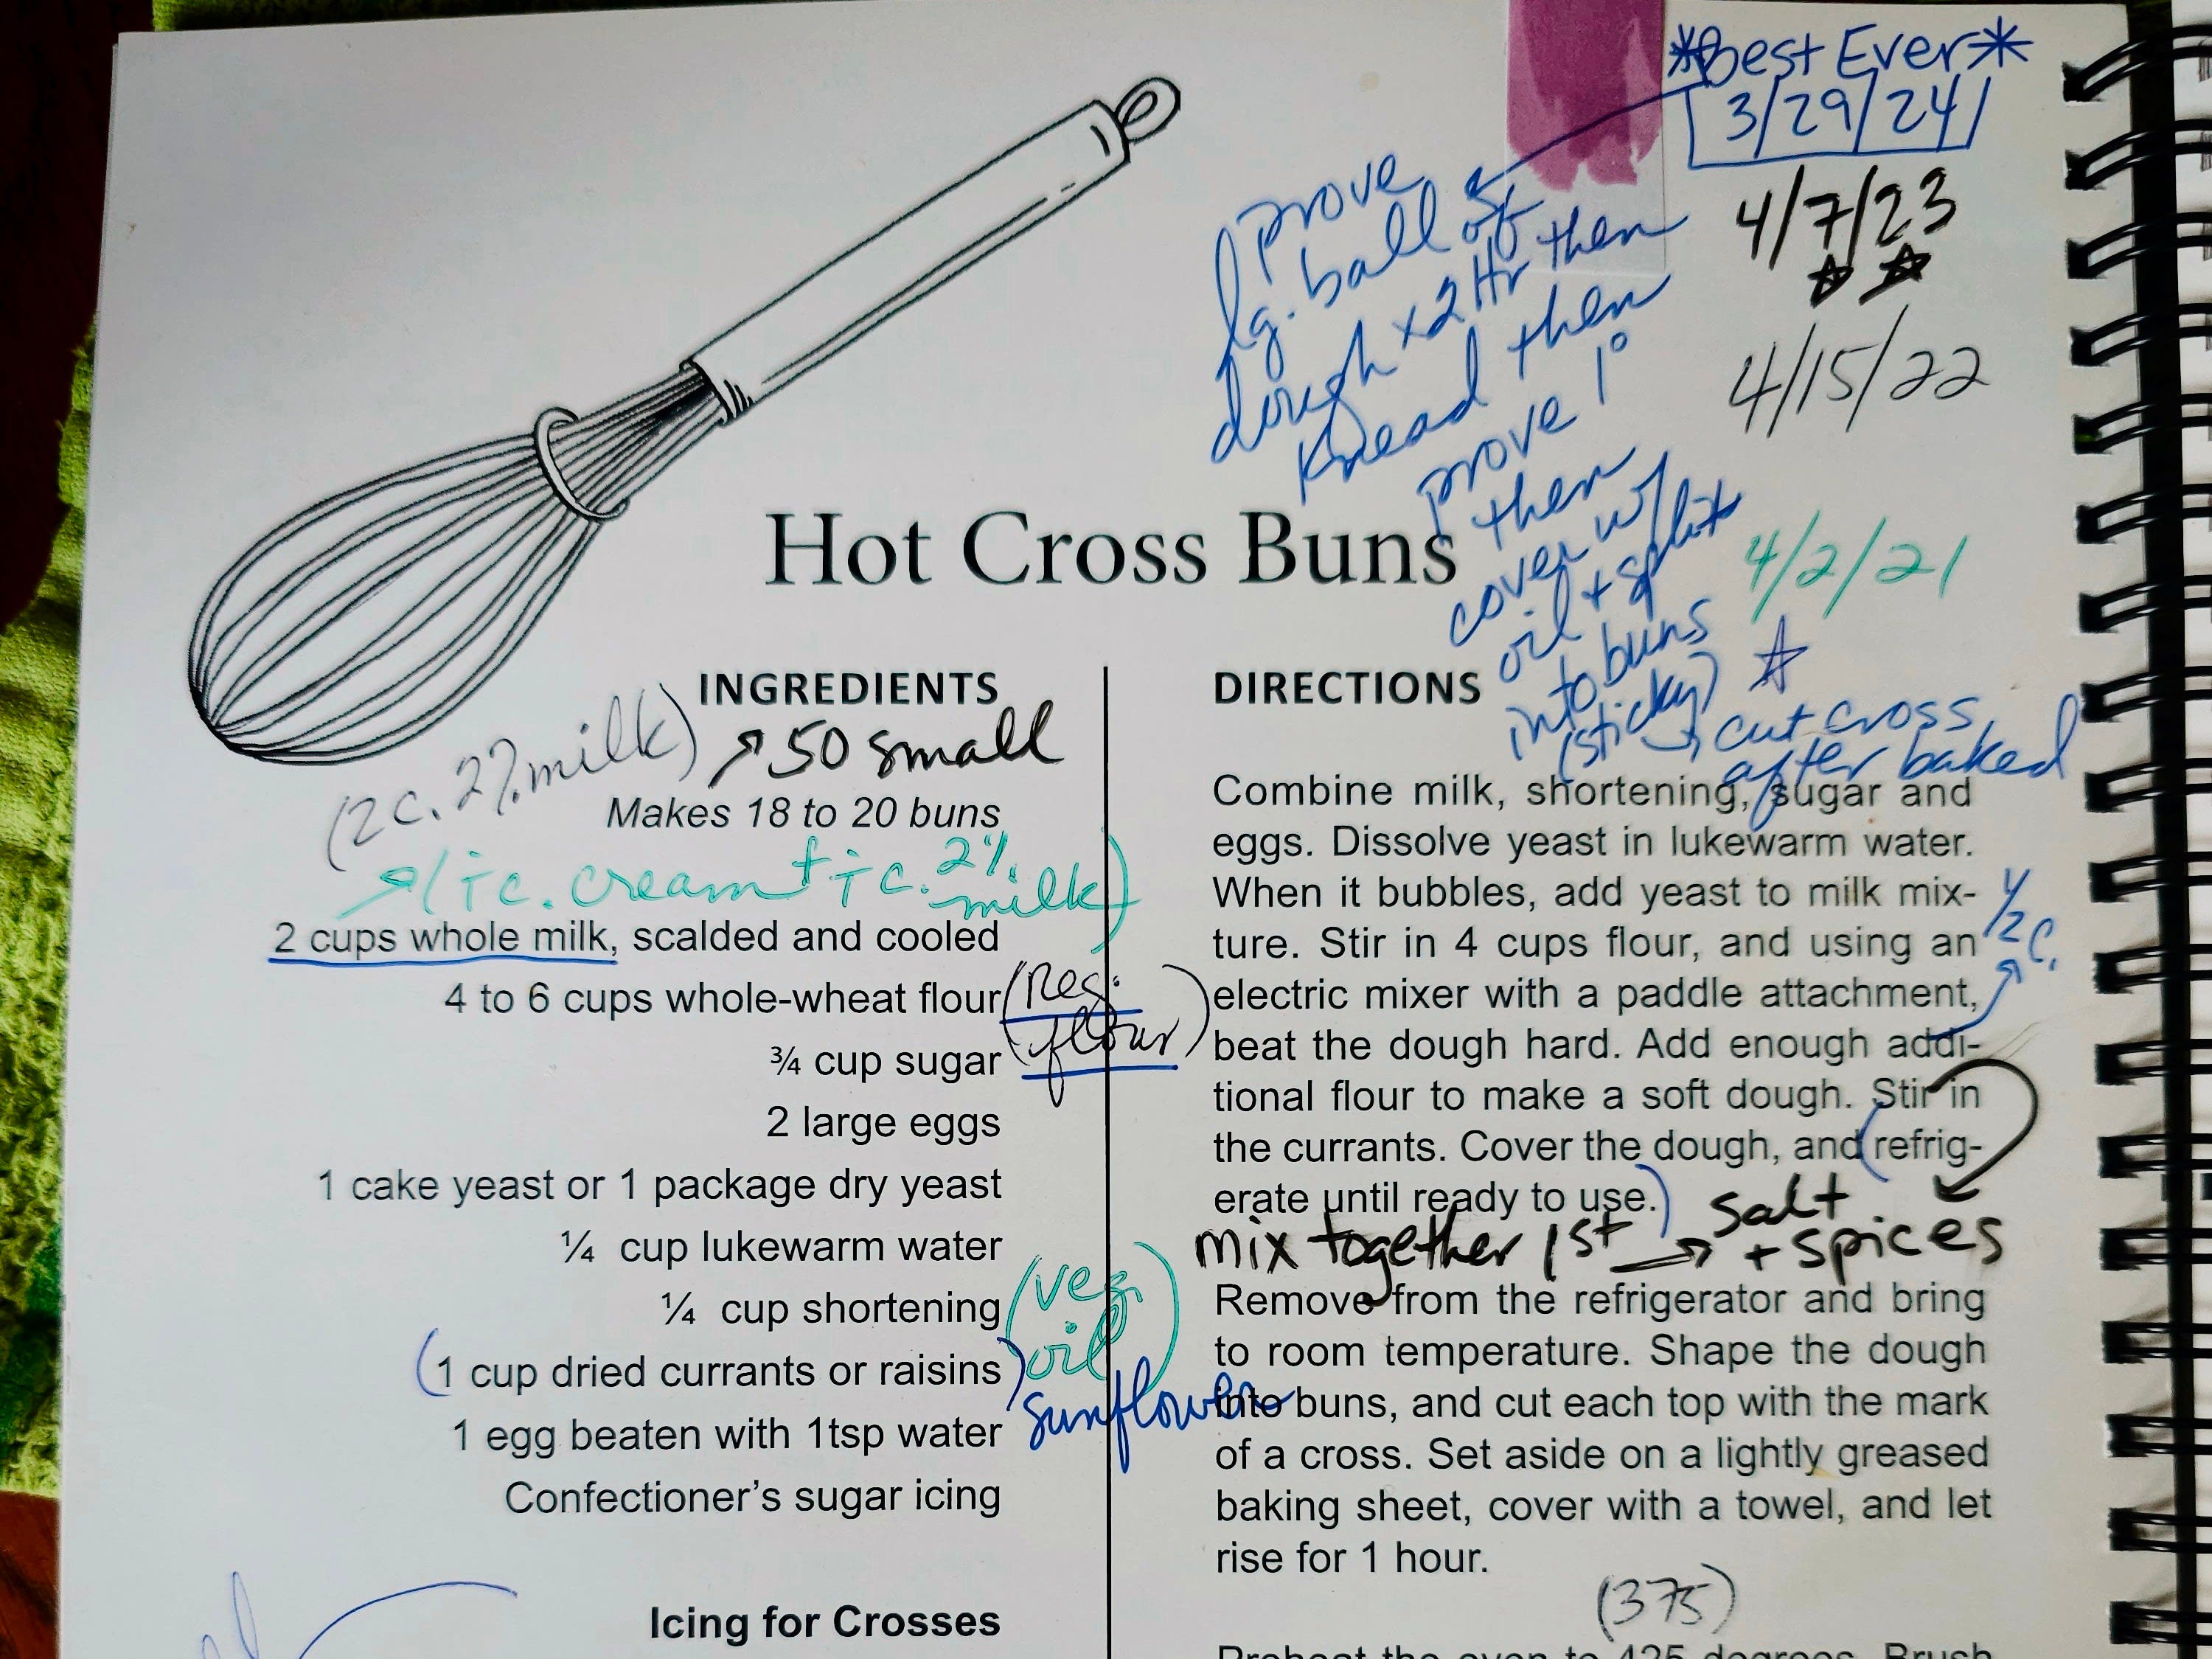 *Best Ever*
3/29/24
4/7/23
4/15/22
4/2/21
prove
lg. ball of
dough x 2 Hr then
Knead then
prove 1°
then
cover w/
oil + split
into buns
(sticky)
cut cross
after baked
Hot Cross Buns
INGREDIENTS
50 small
(2 c. 2% milk)
Makes 18 to 20 buns
(1 c. cream + 1 c. 2%
milk)
2 cups whole milk, scalded and cooled
4 to 6 cups whole-wheat flour
(Reg.
flour)
¾ cup sugar
2 large eggs
1 cake yeast or 1 package dry yeast
¼ cup lukewarm water
¼ cup shortening
(veg.
oil)
sunflower
(1 cup dried currants or raisins)
1 egg beaten with 1tsp water
Confectioner's sugar icing
Icing for Crosses
DIRECTIONS
Combine milk, shortening, sugar and
eggs. Dissolve yeast in lukewarm water.
When it bubbles, add yeast to milk mix-
ture. Stir in 4 cups flour, and using an
electric mixer with a paddle attachment,
beat the dough hard. Add enough addi-
1/2 c.
tional flour to make a soft dough. Stir in
the currants. Cover the dough, and (refrig-
erate until ready to use.)
mix together 1st → salt
+ spices
Remove from the refrigerator and bring
to room temperature. Shape the dough
into buns, and cut each top with the mark
of a cross. Set aside on a lightly greased
baking sheet, cover with a towel, and let
rise for 1 hour.
(375)
Preheat the oven to 425 degrees. Brush